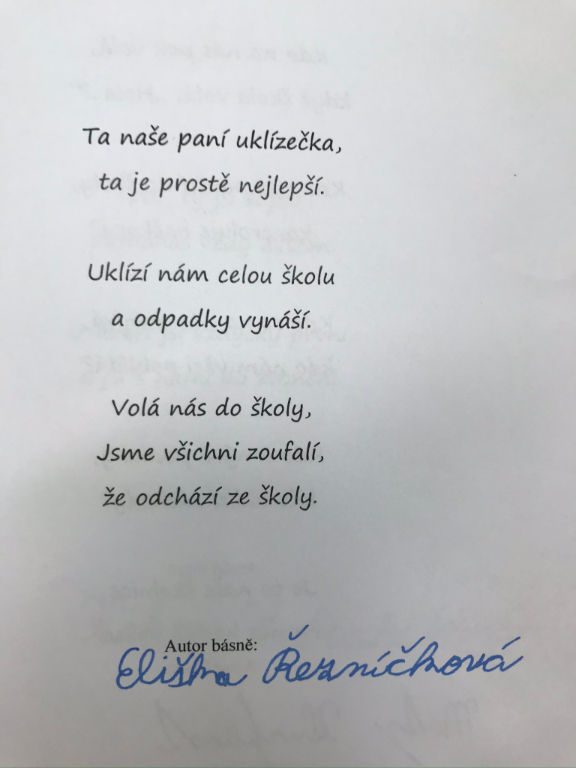 Ta naše paní uklízečka,
ta je prostě nejlepší.
Uklízí nám celou školu
a odpadky vynáší.
Volá nás do školy,
Jsme všichni zoufalí,
že odchází ze školy.
Autor básně:
Eliška Řezníčková